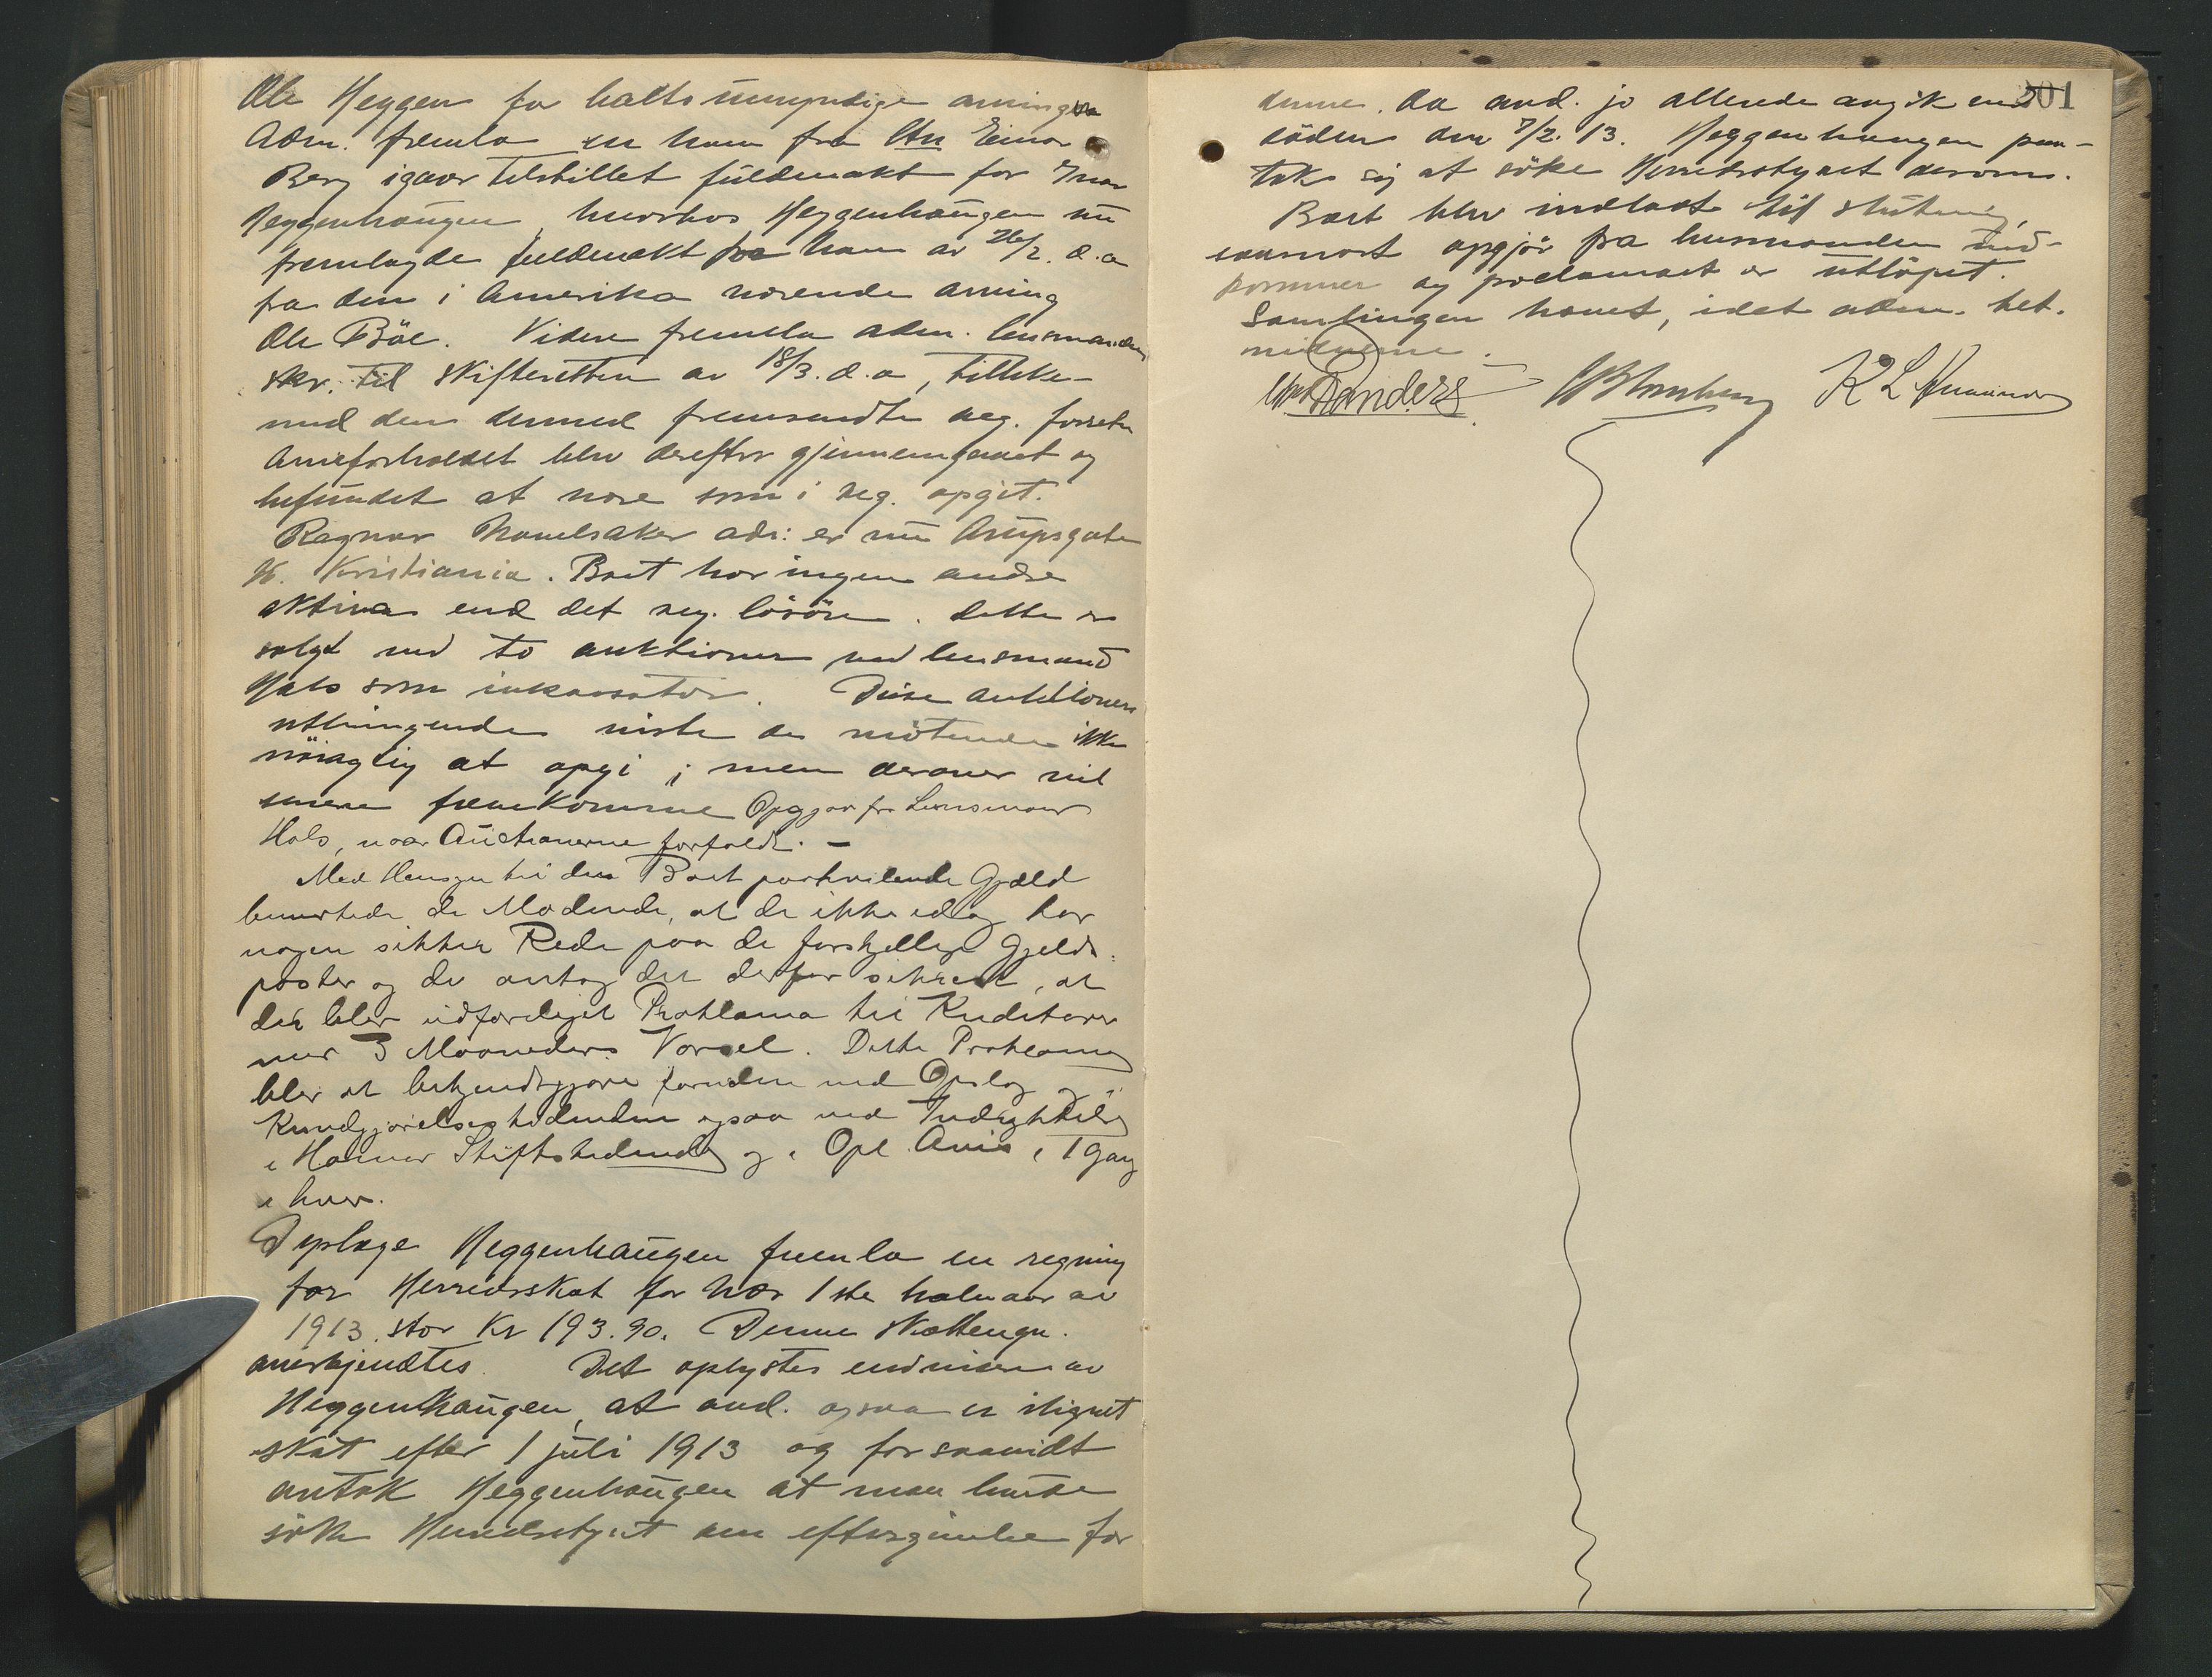 Ole Heggen for halts umyndige arvinger
Adm. fremla en ham fra Einar
Berg igaar tilstillet fuldmakt for Ivar
Heggenhaugen, hvorhos Heggenhaugen nu
fremlagde fuldmakt for ham av 26/2. d.a
fra den i Amerika værende arving
Ole Böe. Videre fremla adm. lensmandens
skr. til skifteretten av 18/3. d.a, tillike-
med den dermed fremsendte reg. forretn
Arveforholdet blev derefter gjennemgaaet og
befundet at være som i reg. opgit.
Ragnar adr: er nu Arupsgate
Kristiania. Boet har ingen andre
aktiva end det reg. lösöre. Dette er
solgt ved to auktioner ved lensmand
Hals som inkassator. Disse auktioners
utbringende visste de mötende ikke
nöiagtig at opgi; men derover vil
senere fremkomme Opgjør fra Lensmand
Hals, naar Auctionerne forfaldt. -
Med Hensyn til den Boet paahvilende Gjæld
bemerkede de Mødende, at de ikke idag har
nogen sikker Rede paa de forskjellige Gjelds-
poster og de antog det derfor sikrest, at
der blev udfærdiget Proklama til Kreditorer
med 3 Maaneders Varsel. Dette Proklama
blev at bekjendtgjøre foruden ved Opslag og i
Kundgjørelsestidenden ogsaa ved Indrykkelse
i Hamar Stiftstidende og i Opl. Avis, 1 gang
i hver.
Heggenhaugen fremla en regning
for Herredsskat for 1ste halvaar av
1913, stor Kr 193.90. Denne skattengn.
anerkjendtes. Det oplystes endvidere av
Heggenhaugen, at avd. ogsaa er ilignet
skat efter 1 juli 1913 og forsaavidt
antok Heggenhaugen at man burde
söke Herredsstyret om eftergivelse for
201
denne, da avd. jo allerede avgik ved
döden den 7/2. 13. Heggenhaugen paa-
tok sig at söke Herredsstyret derom.
Boet blev indladt til slutning,
saasnart opgjör fra lensmanden ind-
kommer og proclamaet er utlöpet.
Samlingen hævet, idet adm. bet.
vidnerne.
Randers K L